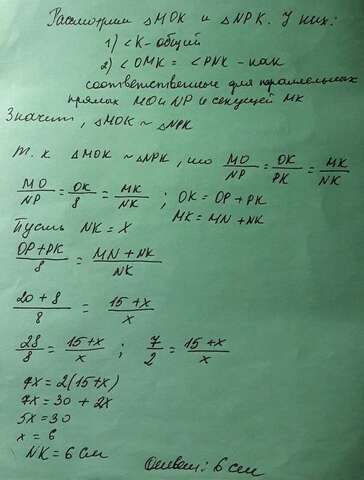 Рассмотрим ΔMOK и ΔNPK. У них:
1) <K-общий
2) <OMK = <PNK - как
соответственные для параллельных
прямых MO и NP и секущей MK
Значит, ΔMOK ~ ΔNPK
Т. к ΔMOK ~ ΔNPK, то MO/NP = OK/PK = MK/NK
MO/NP = OK/8 = MK/NK ; OK = OP + PK
MK = MN + NK
Пусть NK = x
OP+PK/8 = MN + NK/NK
20 + 8/8 = 15 + x/x
28/8 = 15+x/x ; 7/2 = 15+x/x
7x = 2(15+x)
7x = 30 + 2x
5x = 30
x = 6
NK = 6 см
Ответ: 6 см